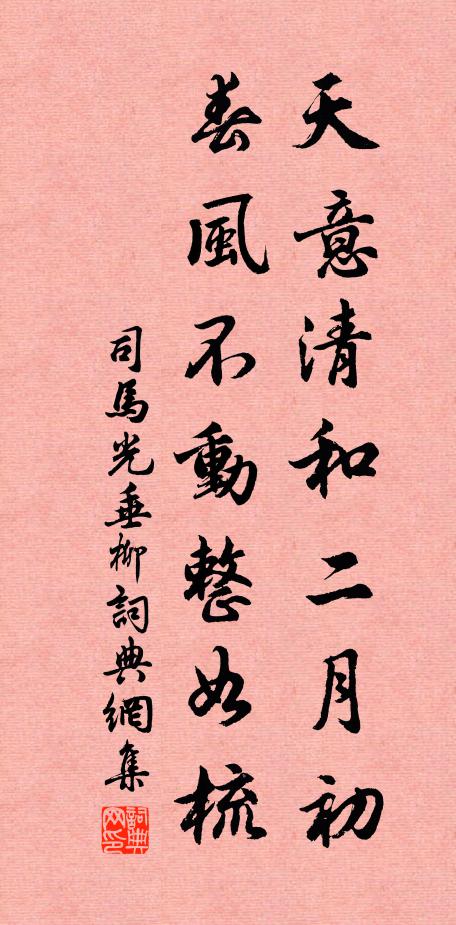 天意清和二月初
春風不動整如梳
司馬光垂柳詞典網集
詞典網印